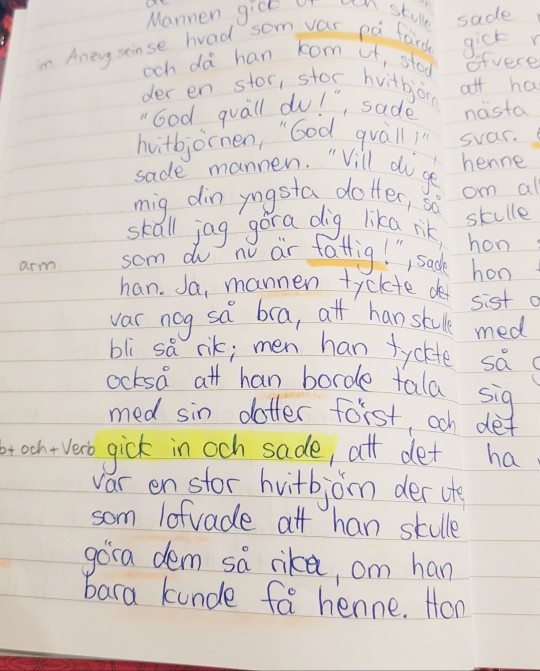 Mannen gick ut och skulle
im Anzug sein
se hvad som var på färde
och då han kom ut, stod
der en stor, stor hvitbjörn
"God quäll du!", sade
hvitbjörnen, "God quäll!"
sade mannen. "Vill du ge
mig din yngsta dotter, så
skall jag göra dig lika rik,
som du nu är fattig!", sade
arm
han. Ja, mannen tyckte det
var nog så bra, att han skulle
bli så rik; men han tyckte
också att han borde tala
med sin dotter först, och
b+och+Verb
gick in och sade, att det
var en stor hvitbjörn der ute
som lofvade att han skulle
göra dem så rika, om han
bara kunde få henne. Hon
sade
gick
öfvere
att ha
nästa
svar.
henne
om al
skulle
hon
hon
sist
med
så
sig
det
ha